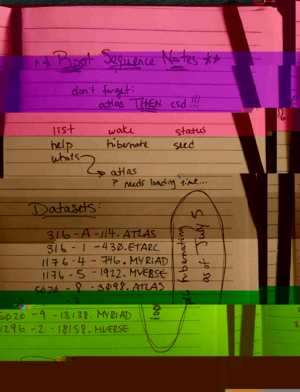 ** Boot Sequence Notes **
don't forget:
atlas THEN csd !!!
list wake status
help hibernate seed
whois
atlas
? needs loading time...
Datasets:
316 - A - 114. ATLAS
316 - 1 - 430. ETARC
1176 - 4 - 746. MYRIAD
1176 - 5 - 1922. MVERSE
5020 - 8 - 3098. ATLAS
5020 - 9 - 13138. MYRIAD
1296 - 2 - 18158. MVERSE
hibernating
as of July 5